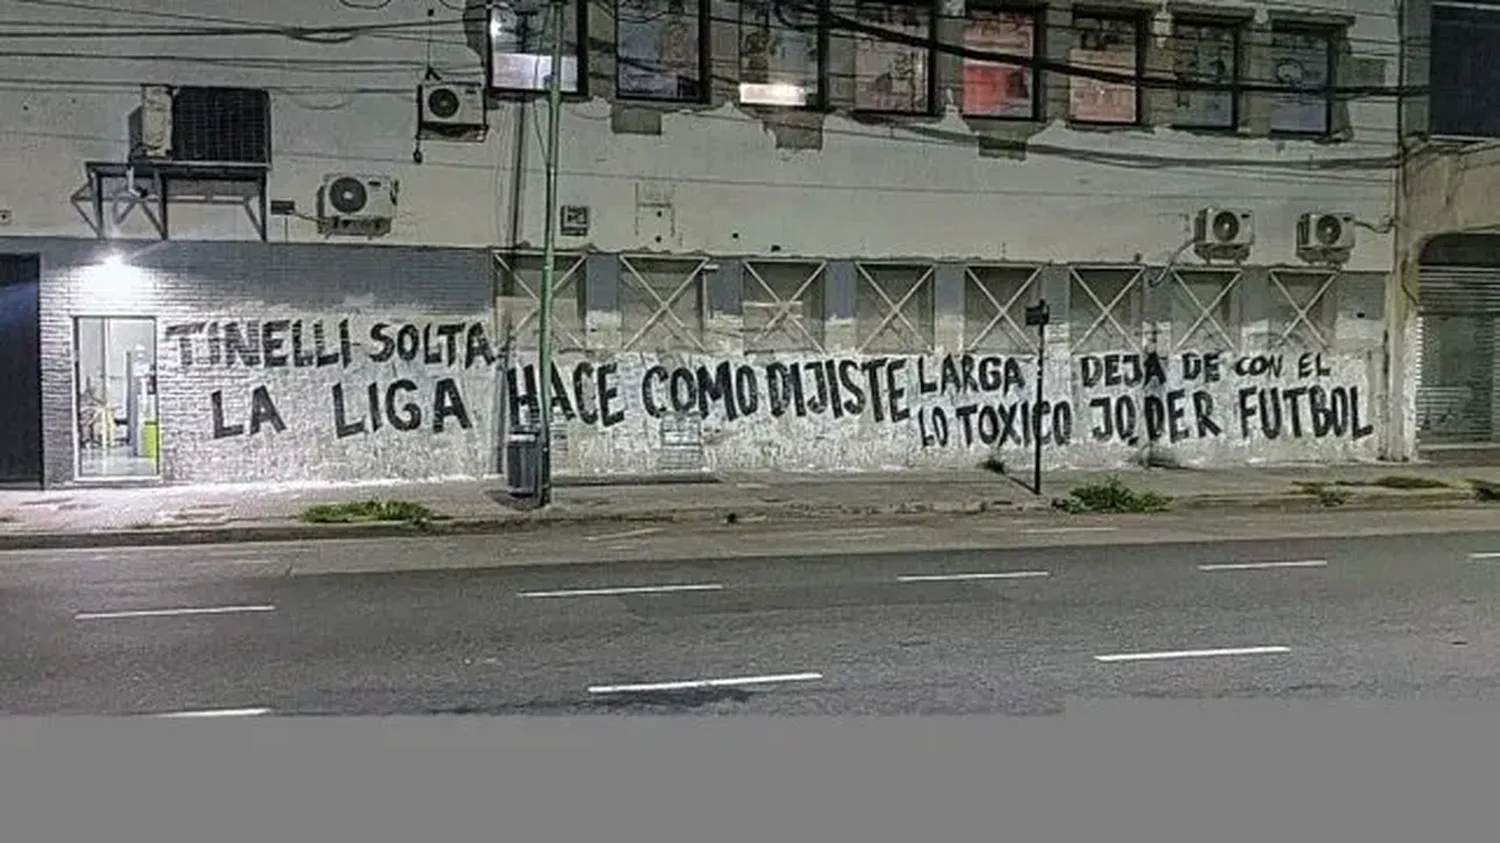 TINELLI SOLTA
LA LIGA
HACE COMO DIJISTE
LARGA
LO TOXICO
DEJA DE CON EL
JODER FUTBOL